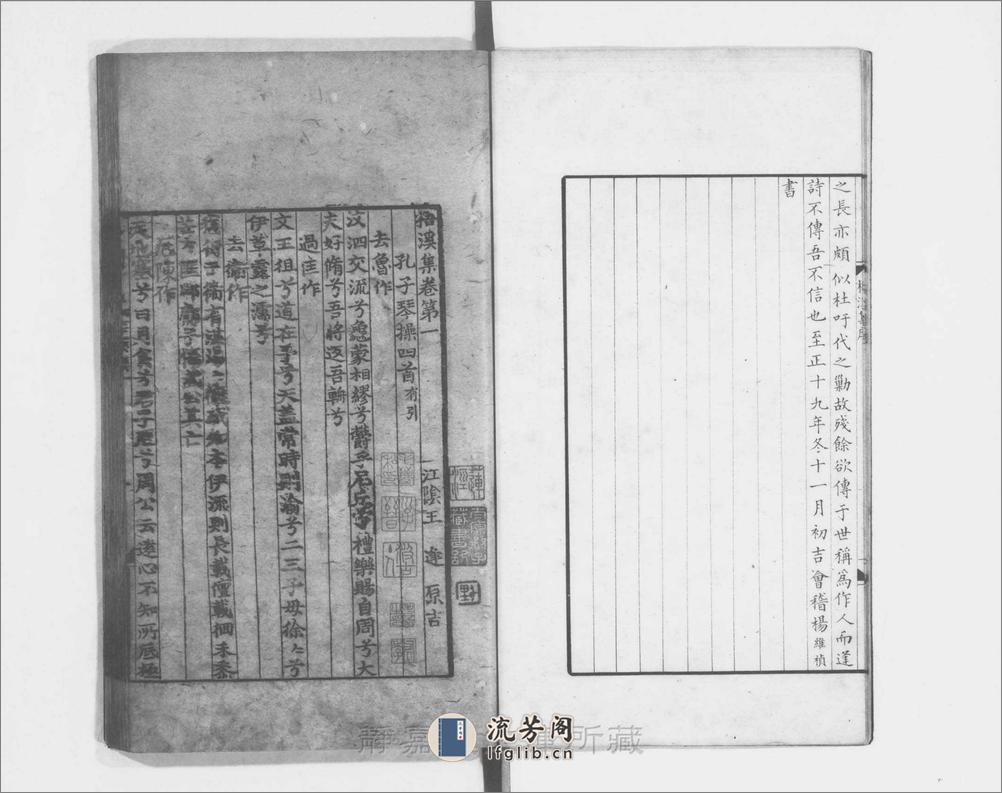 之長亦頗似杜吁代之勦故殘餘欲傳于世稱爲作人而逢
詩不傳吾不信也至正十九年冬十一月初吉會稽楊維楨
書
梧溪集卷第一
江陰王逢原吉
孔子琴操四首有引
去魯作
汶泗交流兮龜蒙相繆兮欝乎尼丘兮禮樂賜自周兮大
夫好脩兮吾將返吾輈兮
過匡作
文王徂兮道在予兮天盖常時則渝兮二三子毋徐〻兮
伊草露之濡兮
去衛作
伊源則長載僵載徊未忝
其亡
居陳作
兮日月食兮君子厄兮周公云遠心不知所底極
静嘉 所藏
流芳阁
lfglib.cn